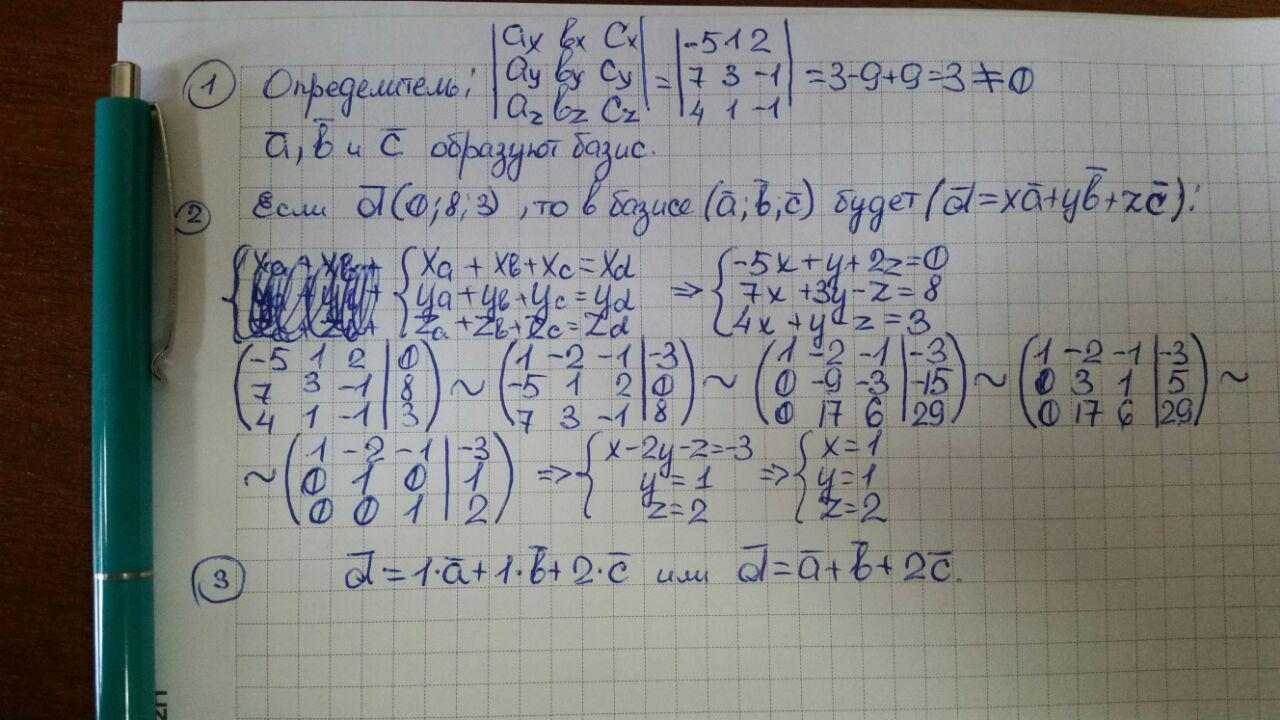 ① Определитель: |aₓ bₓ cₓ; a_y b_y c_y; a_z b_z c_z| = |-5 1 2; 7 3 -1; 4 1 -1| = 3-9+9=3≠0
a̅, b̅ и c̅ образуют базис.
② Если d̅(0;8;3), то в базисе (a̅;b̅;c̅) будет (d̅=xa̅+yb̅+zc̅):
{xa + xb + xc = xd; ya + yb + yc = yd; za + zb + zc = zd ⇒ {-5x+y+2z=0; 7x+3y-z=8; 4x+y-z=3
(-5 1 2 | 0; 7 3 -1 | 8; 4 1 -1 | 3) ~ (1 -2 -1 | -3; -5 1 2 | 0; 7 3 -1 | 8) ~ (1 -2 -1 | -3; 0 -9 -3 | -15; 0 17 6 | 29) ~ (1 -2 -1 | -3; 0 3 1 | 5; 0 17 6 | 29) ~
~ (1 -2 -1 | -3; 0 1 0 | 1; 0 0 1 | 2) ⇒ {x-2y-z=-3; y=1; z=2 ⇒ {x=1; y=1; z=2
③ d̅=1·a̅+1·b̅+2·c̅ или d̅=a̅+b̅+2c̅.